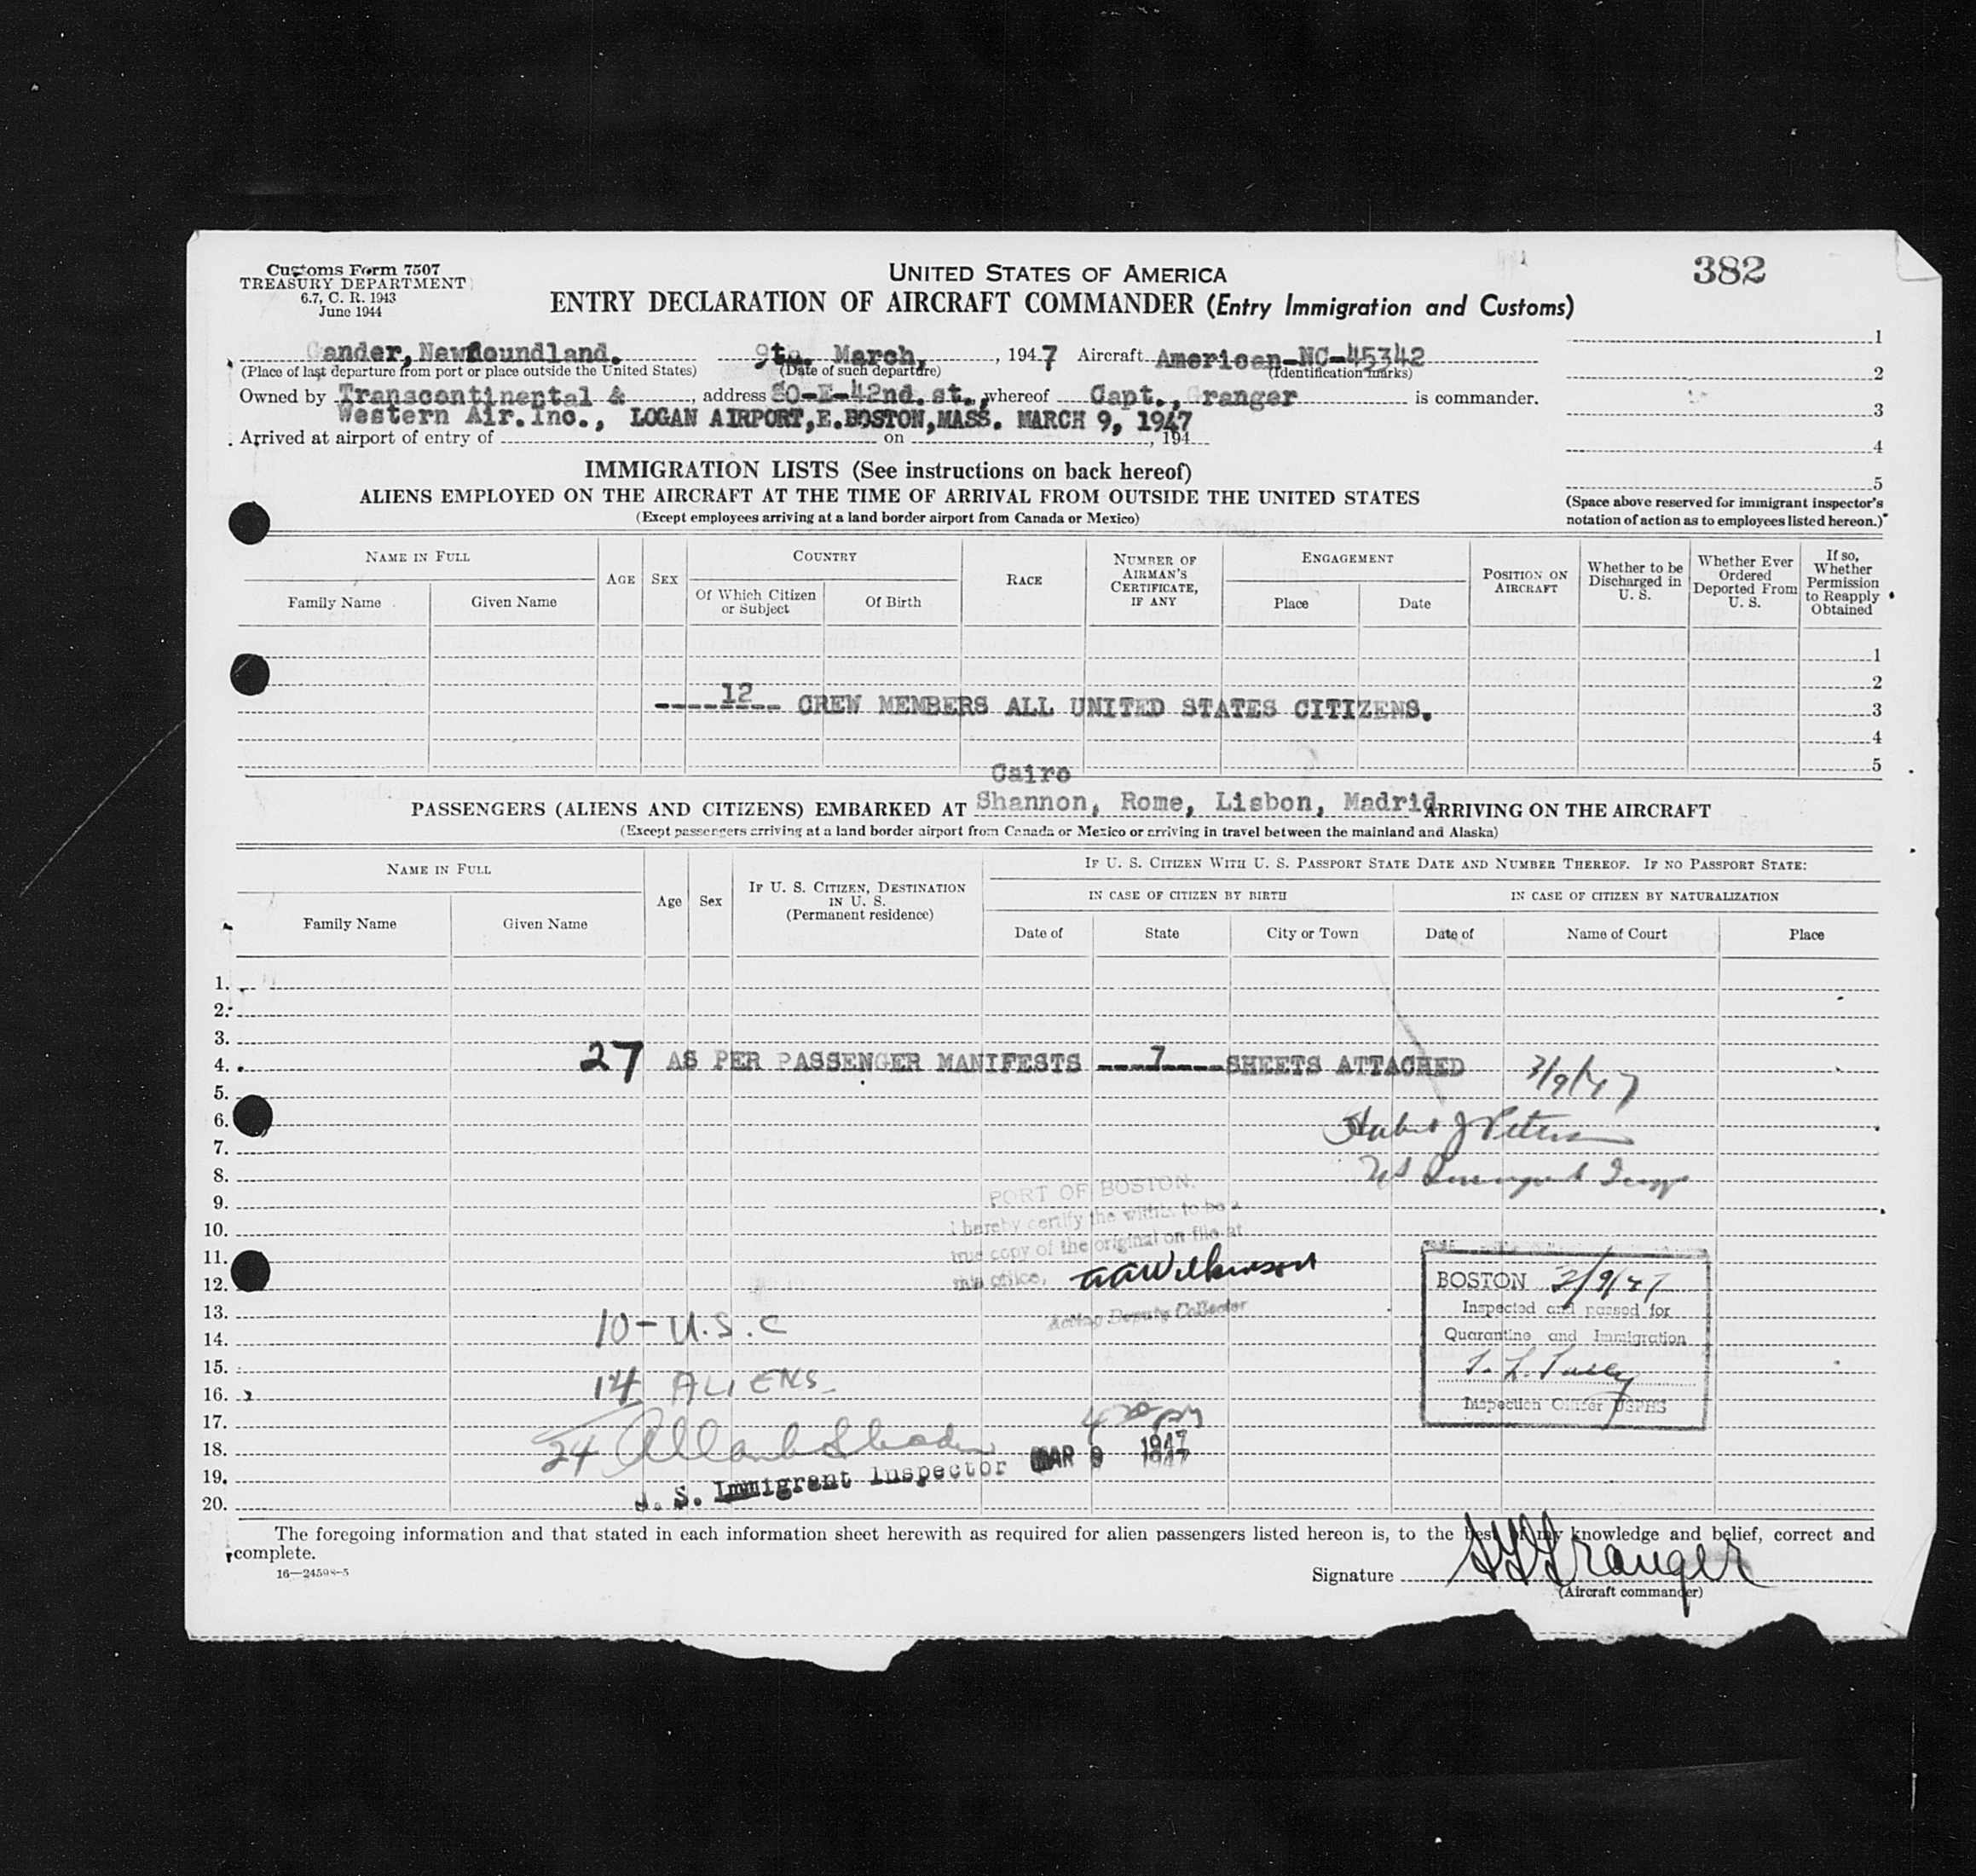 382
Customs Form 7507
TREASURY DEPARTMENT
6.7, C. R. 1943
June 1944
UNITED STATES OF AMERICA
ENTRY DECLARATION OF AIRCRAFT COMMANDER (Entry Immigration and Customs)
Gander, Newfoundland. 9th. March, , 1947 Aircraft American-NC-45342
(Place of last departure from port or place outside the United States) (Date of such departure) (Identification marks)
Owned by Transcontinental & , address 80-E-42nd. st., whereof Capt., Granger is commander.
Western Air. Inc., LOGAN AIRPORT, E. BOSTON, MASS. MARCH 9, 1947
Arrived at airport of entry of on , 194
1
2
3
4
5
(Space above reserved for immigrant inspector's
notation of action as to employees listed hereon.)
IMMIGRATION LISTS (See instructions on back hereof)
ALIENS EMPLOYED ON THE AIRCRAFT AT THE TIME OF ARRIVAL FROM OUTSIDE THE UNITED STATES
(Except employees arriving at a land border airport from Canada or Mexico)
NAME IN FULL
Family Name Given Name
AGE SEX
COUNTRY
Of Which Citizen or Subject Of Birth
RACE
NUMBER OF AIRMAN'S CERTIFICATE, IF ANY
ENGAGEMENT
Place Date
POSITION ON AIRCRAFT
Whether to be Discharged in U. S.
Whether Ever Ordered Deported From U. S.
If so, Whether Permission to Reapply Obtained
1
2
----12---- CREW MEMBERS ALL UNITED STATES CITIZENS. 3
4
5
Cairo
PASSENGERS (ALIENS AND CITIZENS) EMBARKED AT Shannon, Rome, Lisbon, Madrid ARRIVING ON THE AIRCRAFT
(Except passengers arriving at a land border airport from Canada or Mexico or arriving in travel between the mainland and Alaska)
NAME IN FULL
Family Name Given Name
Age Sex
IF U. S. CITIZEN, DESTINATION IN U. S. (Permanent residence)
IF U. S. CITIZEN WITH U. S. PASSPORT STATE DATE AND NUMBER THEREOF. IF NO PASSPORT STATE:
IN CASE OF CITIZEN BY BIRTH IN CASE OF CITIZEN BY NATURALIZATION
Date of State City or Town Date of Name of Court Place
1.
2.
3.
4. 27 AS PER PASSENGER MANIFESTS ----7---- SHEETS ATTACHED 3/9/47
5.
6.
7.
8.
9. PORT OF BOSTON.
10. I hereby certify the within to be a
11. true copy of the original on file at
12. this office. Wilkinson
Acting Deputy Collector
13.
14. 10-U.S.C
15.
16. 14 ALIENS
17.
18. 24
19. U. S. Immigrant Inspector MAR 9 1947
20.
BOSTON 3/9/47
Inspected and passed for
Quarantine and Immigration
Inspection Officer USPHS
The foregoing information and that stated in each information sheet herewith as required for alien passengers listed hereon is, to the best of my knowledge and belief, correct and
complete.
16—24598-5
Signature Granger
(Aircraft commander)